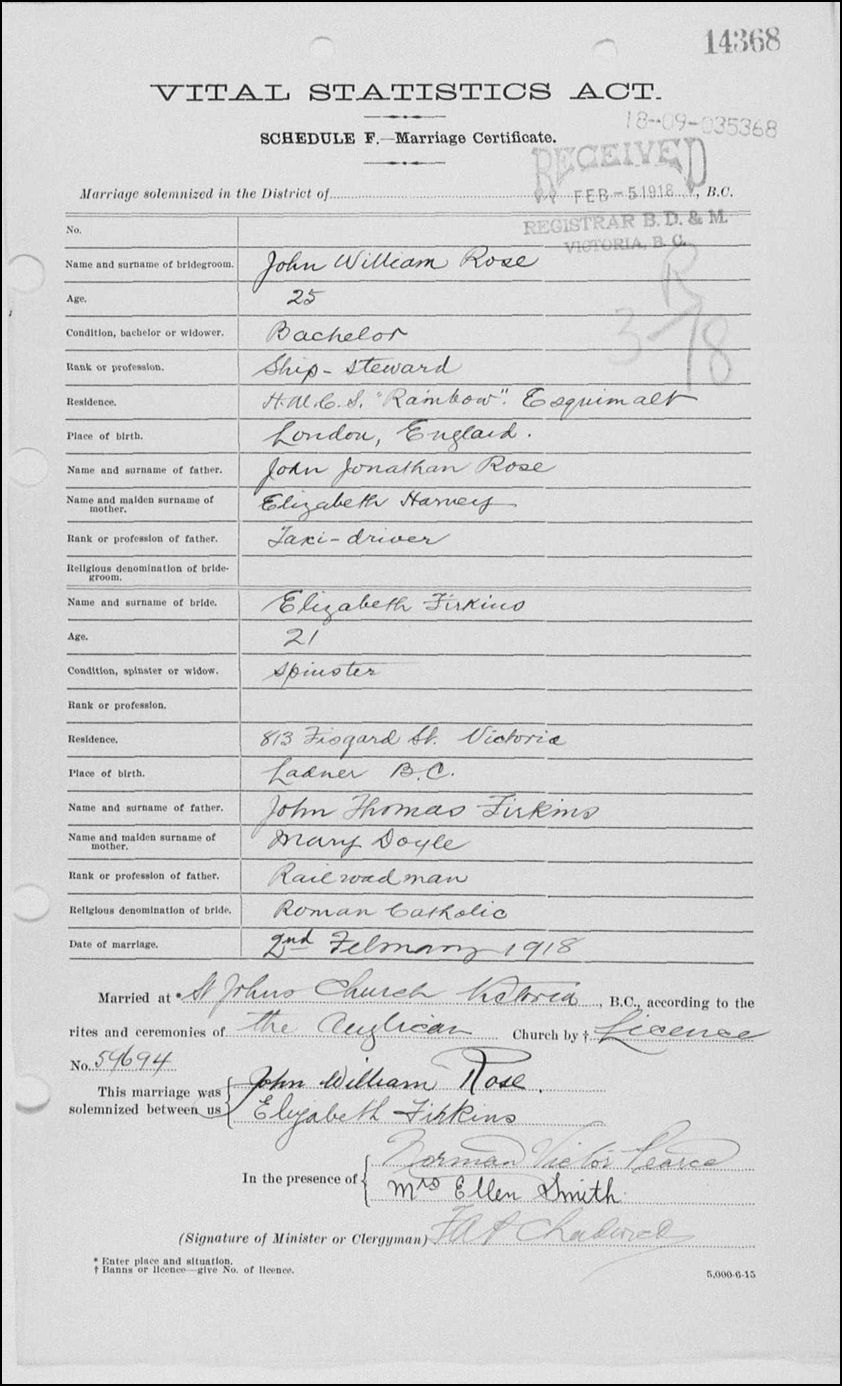 14368
VITAL STATISTICS ACT.
18-09-035368
SCHEDULE F.—Marriage Certificate.
RECEIVED
Marriage solemnized in the District of , B.C.
FEB - 5 1918
REGISTRAR B. D. & M.
VICTORIA, B. C.
No.
Name and surname of bridegroom. John William Rose
R
Age. 25
3/18
Condition, bachelor or widower. Bachelor
Rank or profession. Ship-steward
Residence. H.M.C.S. "Rainbow". Esquimalt
Place of birth. London, England.
Name and surname of father. John Jonathan Rose
Name and maiden surname of mother. Elizabeth Harvey
Rank or profession of father. Taxi-driver
Religious denomination of bride-groom.
Name and surname of bride. Elizabeth Firkins
Age. 21
Condition, spinster or widow. Spinster
Rank or profession.
Residence. 813 Fisgard St. Victoria
Place of birth. Ladner B.C.
Name and surname of father. John Thomas Firkins
Name and maiden surname of mother. Mary Doyle
Rank or profession of father. Railroad man
Religious denomination of bride. Roman Catholic
Date of marriage. 2nd February 1918
Married at * St Johns Church Victoria , B.C., according to the
rites and ceremonies of the Anglican Church by † Licence
No. 59694
This marriage was solemnized between us
John William Rose.
Elizabeth Firkins
In the presence of
Norman Victor Pearce
Mrs Ellen Smith.
(Signature of Minister or Clergyman) F A P Chadwick
* Enter place and situation.
† Banns or licence—give No. of licence.
5,000-6-15